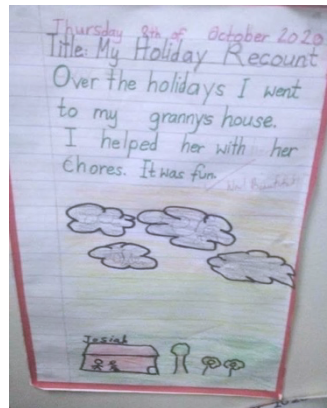 Thursday 8th of October 2020
Title: My Holiday Recount
Over the holidays I went
to my grannys house.
I helped her with her
Chores. It was fun.
Josiah